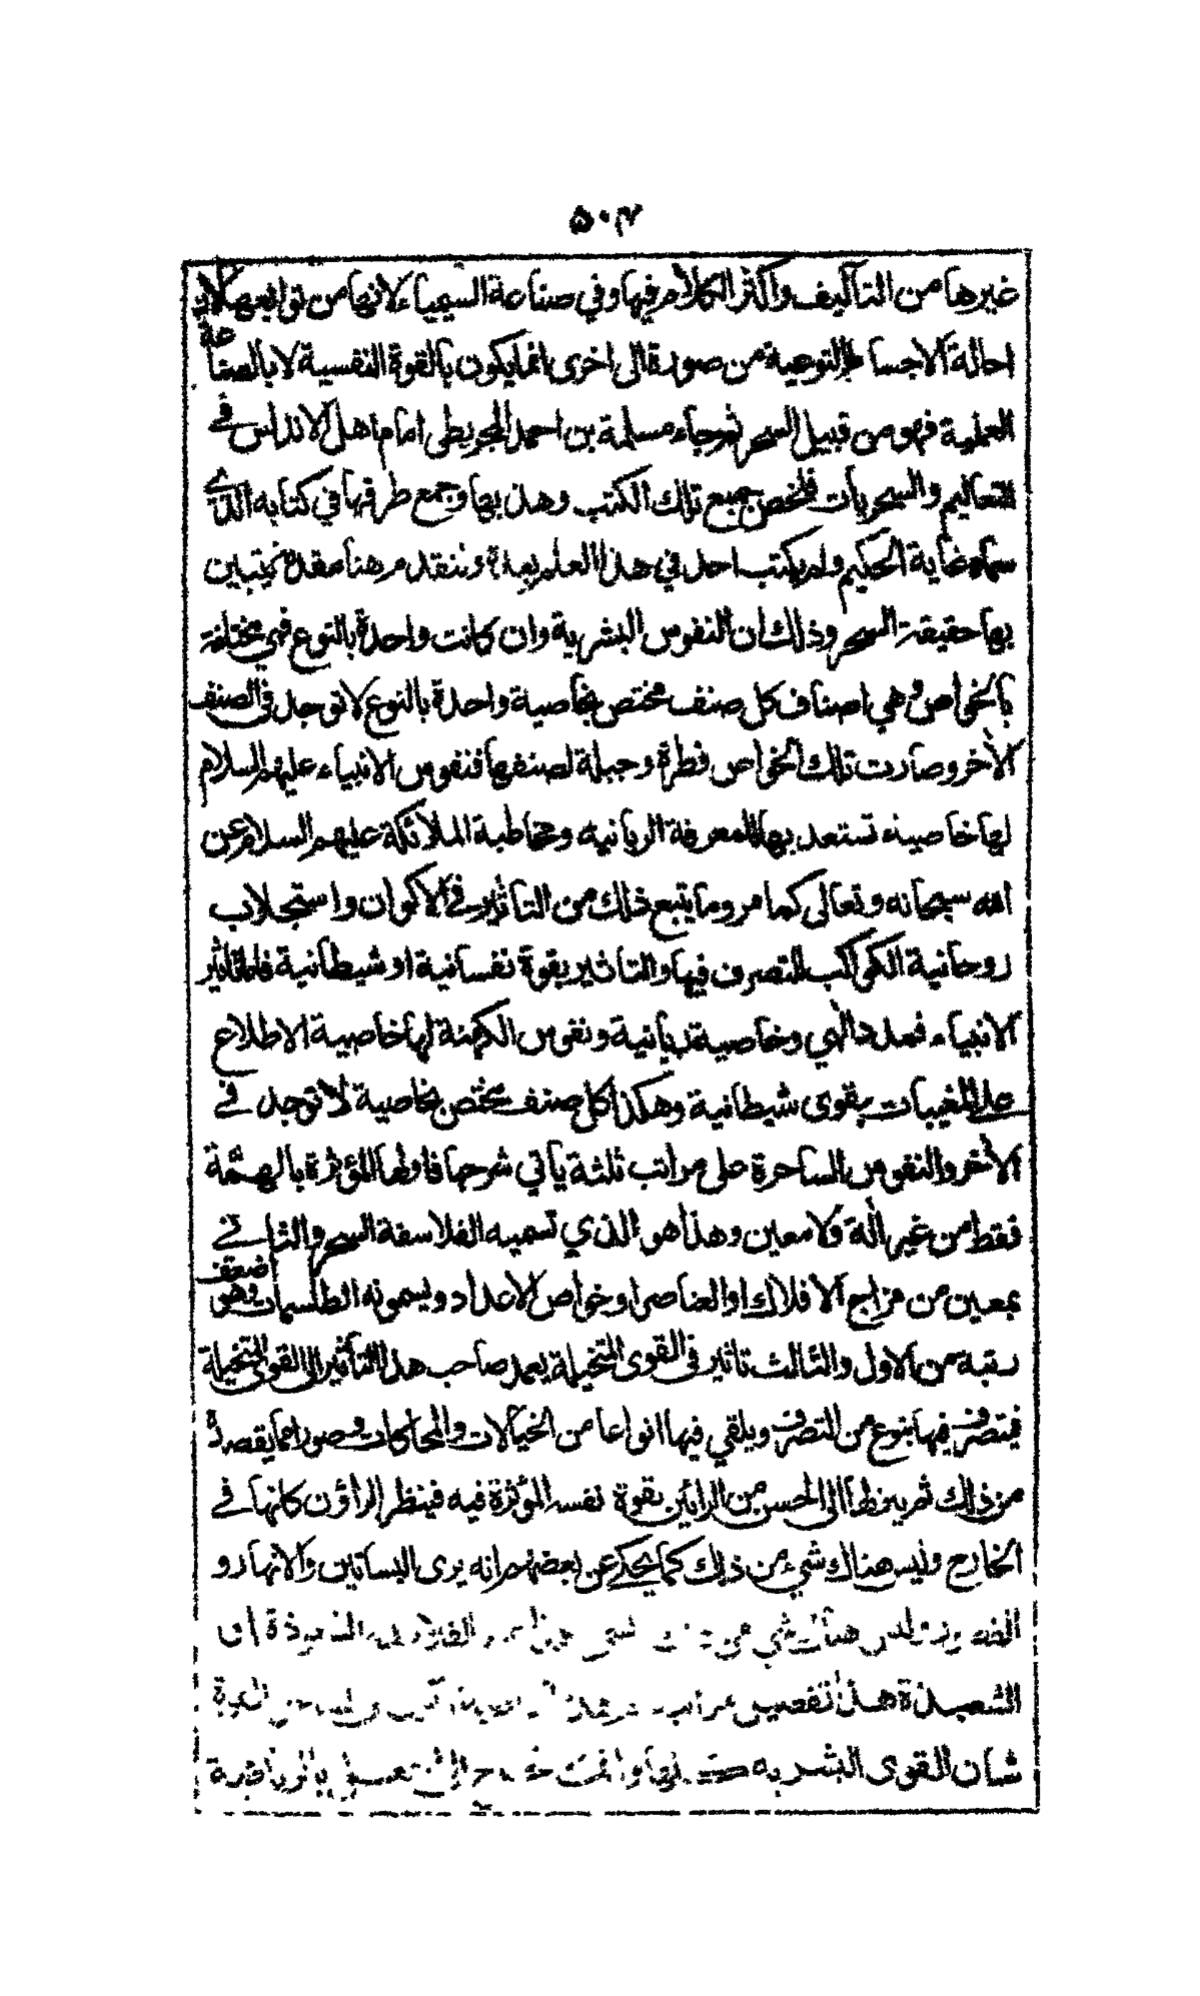 ٥٠٧
غيرها من التآليف واكثر الكلام فيها وفي صناعة السيمياء لانها من توابعها لان
احالة الاجسام النوعية من صورة الى اخرى انما يكون بالقوة النفسية لا بالصناعة
العملية فهو من قبيل السحر ثم جاء مسلمة بن احمد المجريطى امام اهل الاندلس في
التعاليم والسحريات فلخص جميع تلك الكتب وهذبها وجمع طرقها في كتابه الذي
سماه غاية الحكيم ولم يكتب احد في هذا العلم بعده ونقدم هنا مقدمة يتبين
بها حقيقة السحر وذلك ان النفوس البشرية وان كانت واحدة بالنوع فهي مختلفة
بالخواص وهي اصناف كل صنف مختص بخاصية واحدة بالنوع لا توجد في الصنف
الآخر وصارت تلك الخواص فطرة وجبلة لصنفها فنفوس الانبياء عليهم السلام
لها خاصية تستعد بها للمعرفة الربانية ومخاطبة الملائكة عليهم السلام عن
الله سبحانه وتعالى كما مر وما يتبع ذلك من التأثير في الاكوان واستجلاب
روحانية الكواكب للتصرف فيها والتاثير بقوة نفسانية او شيطانية فاما تاثير
الانبياء فمدد الهي وخاصية ربانية ونفوس الكهنة لها خاصية الاطلاع
على المغيبات بقوى شيطانية وهكذا كل صنف مختص بخاصية لا توجد في
الآخر والنفوس الساحرة على مراتب ثلثة يأتي شرحها فاولها المؤثرة بالهمّة
فقط من غير آلة ولا معين وهذا هو الذي تسميه الفلاسفة السحر والثاني
بمعين من مزاج الافلاك او العناصر او خواص الاعداد ويسمونه الطلسمات وهو اضعف
رتبة من الاول والثالث تاثير في القوى المتخيلة يعمد صاحب هذا التأثير الى القوى المتخيلة
فيتصرف فيها بنوع من التصرف ويلقي فيها انواعا من الخيالات والمحاكات وصورا مما يقصده
من ذلك ثم ينزلها الى الحس من الرائين بقوة نفسه المؤثرة فيه فينظر الراؤن كانها في
الخارج وليس هناك شيء من ذلك كما يحكى عن بعضهم انه يرى البساتين والانهار و
القصور وليس هناك شي من ذلك الفلاسفة الشعوذة او
الشعبذة هذا تفصيل مراتبه
شان القوى البشرية بالرياضة